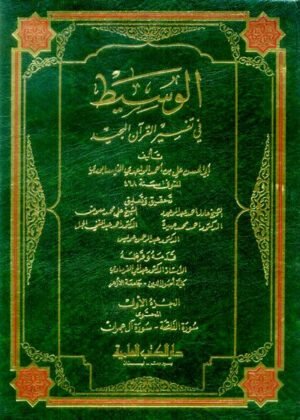 الوسيط
في تفسير القرآن المجيد
تأليف
أبي الحسن علي بن أحمد الواحدي النيسابوري
المتوفى سنة ٤٦٨
تحقيق وتعليق
الشيخ عادل أحمد عبد الموجود الشيخ علي محمد معوض
الدكتور أحمد محمد صيرة الدكتور أحمد عبد الغني الجمل
الدكتور عبد الرحمن عويس
قدمه وقرظه
الأستاذ الدكتور عبد الحي الفرماوي
كلية أصول الدين - جامعة الأزهر
الجزء الأول
المحتوى
سورة الفاتحة - سورة آل عمران
دار الكتب العلمية
بيروت - لبنان